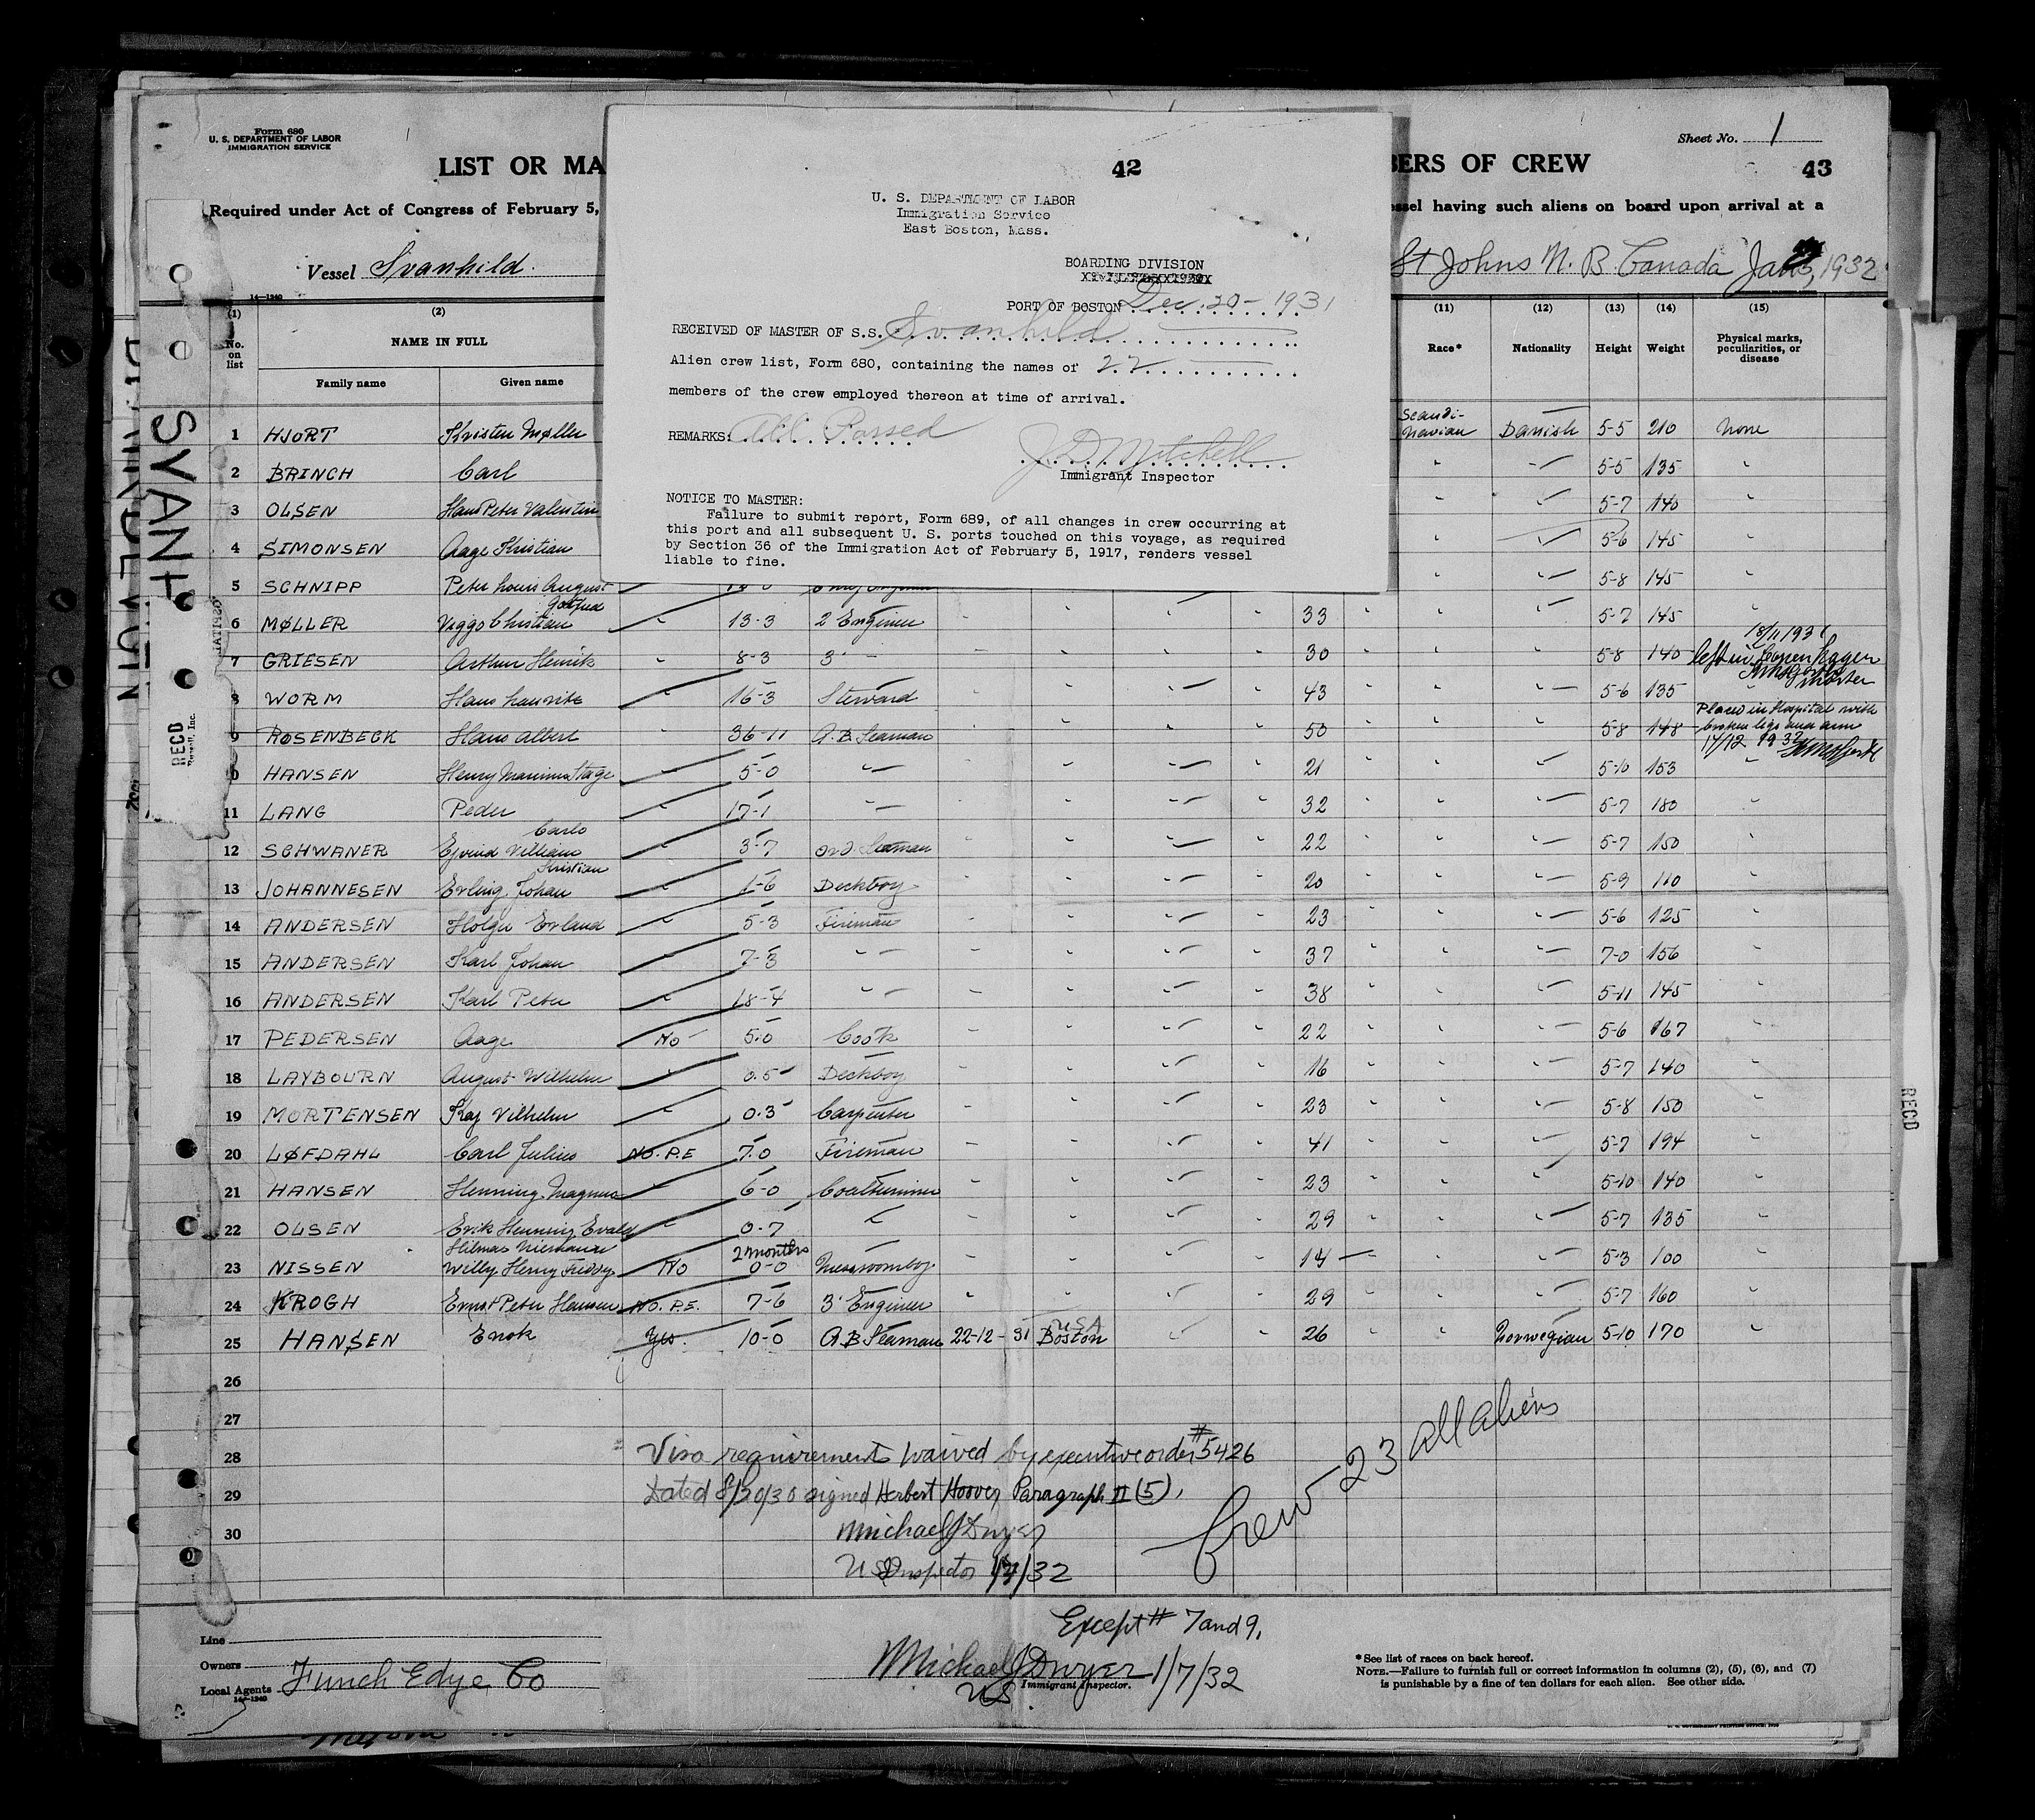 Form 680
U. S. DEPARTMENT OF LABOR
IMMIGRATION SERVICE
Sheet No. 1
LIST OR MA
BERS OF CREW
43
Required under Act of Congress of February 5,
ssel having such aliens on board upon arrival at a
Vessel Svanhild.
St Johns N. B Canada Jan 1932
42
U. S. DEPARTMENT OF LABOR
Immigration Service
East Boston, Mass.
BOARDING DIVISION
PORT OF BOSTON Dec. 20 - 1931
RECEIVED OF MASTER OF S.S. Svanhild
Alien crew list, Form 680, containing the names of 22
members of the crew employed thereon at time of arrival.
REMARKS: All Passed
J D Mitchell
Immigrant Inspector
NOTICE TO MASTER:
Failure to submit report, Form 689, of all changes in crew occurring at
this port and all subsequent U. S. ports touched on this voyage, as required
by Section 36 of the Immigration Act of February 5, 1917, renders vessel
liable to fine.
14—1240
(1) (2) (11) (12) (13) (14) (15)
No. on list NAME IN FULL Race* Nationality Height Weight Physical marks, peculiarities, or disease
Family name Given name
1 HJORT Kristen Møller Scandinavian Danish 5-5 210 None
2 BRINCH Carl " " 5-5 135 "
3 OLSEN Hans Peter Valentin " " 5-7 140 "
4 SIMONSEN Aage Kristian " 5-6 145 "
5 SCHNIPP Peter Louis August " " 5-8 145 "
6 MØLLER Viggo Christian Gotfred " 13-3 2 Engineer " " " 33 " " " 5-7 145 "
7 GRIESEN Arthur Henrik " 8-3 3' " " " " 30 " " " 5-8 140 18/11 1931 left in Copenhagen
8 WORM Hans Lauritz " 16-3 Steward " " " " 43 " " " 5-6 135 "
9 ROSENBECK Hans Albert " 36-11 A.B. Seaman " " " " 50 " " " 5-8 148 Placed in Hospital with broken legs and arm 17/12 1932
10 HANSEN Henry Marinus Hage " 5-0 " " " " 21 " " " 5-10 153 "
11 LANG Peder " 17-1 " " " " 32 " " " 5-7 180 "
12 SCHWANER Ejvind William Carlo " 3-7 Ord. Seaman " " " " 22 " " " 5-7 150 "
13 JOHANNESEN Erling Johan Kristian " 1-6 Deckboy " " " " 20 " " " 5-9 110 "
14 ANDERSEN Holger Erland " 5-3 Fireman " " " " 23 " " " 5-6 125 "
15 ANDERSEN Karl Johan " 7-3 " " " " " 37 " " " 7-0 156 "
16 ANDERSEN Karl Peter " 18-4 " " " " " 38 " " " 5-11 145 "
17 PEDERSEN Aage No 5-0 Cook " " " " 22 " " " 5-6 167 "
18 LAYBOURN August Wilhelm " 0.5 Deckboy " " " " 16 " " " 5-7 140 "
19 MORTENSEN Kaj Vilhelm " 0.3 Carpenter " " " " 23 " " " 5-8 150 "
20 LØFDAHL Carl Julius NO. P.E 7.0 Fireman " " " " 41 " " " 5-7 194 "
21 HANSEN Henning Magnus " 6-0 Coaltrimmer " " " " 23 " " " 5-10 140 "
22 OLSEN Erik Henning Evald " 0-7 " " " " " 29 " " " 5-7 135 "
23 NISSEN Willy Henry Fredy No 2 months 0-0 Messroomboy " " " " 14 " " " 5-3 100 "
24 KROGH Ernst Peter Hansen NO. P.E. 7-6 3' Engineer " " " " 29 " " " 5-7 160 "
25 HANSEN Enok Yes 10-0 A.B Seaman 22-12-31 Boston USA " " 26 " " Norwegian 5-10 170 "
26
27
28
29
30
Visa requirements waived by executive order #5426
Dated 8/20/30 signed Herbert Hoover, Paragraph II (5),
Michael J Dwyer
US Inspector 1/7/32
Crew 23 all aliens
Except # 7 and 9,
Line
Owners
Local Agents Funch Edye Co
14—1240
Michael J Dwyer 1/7/32
US Immigrant Inspector.
*See list of races on back hereof.
NOTE.—Failure to furnish full or correct information in columns (2), (5), (6), and (7)
is punishable by a fine of ten dollars for each alien. See other side.
SVANH
RECD
RECD